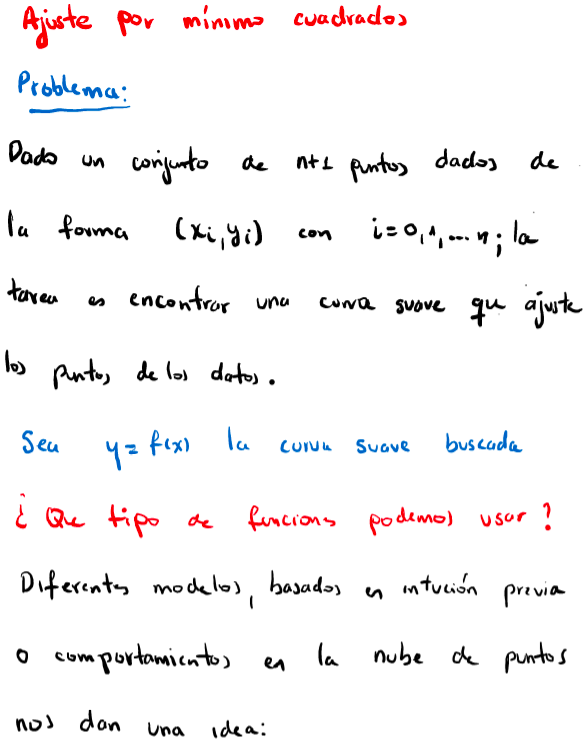 Ajuste por mínimo cuadrados
Problema:
Dado un conjunto de n+1 puntos dados de
la forma (xi, yi) con i=0,1,...n; la
tarea es encontrar una curva suave que ajuste
los puntos de los datos.
Sea y=f(x) la curva suave buscada
¿ Que tipo de funcions podemos usar?
Diferentes modelos, basados en intución previa
o comportamientos en la nube de puntos
nos dan una idea: